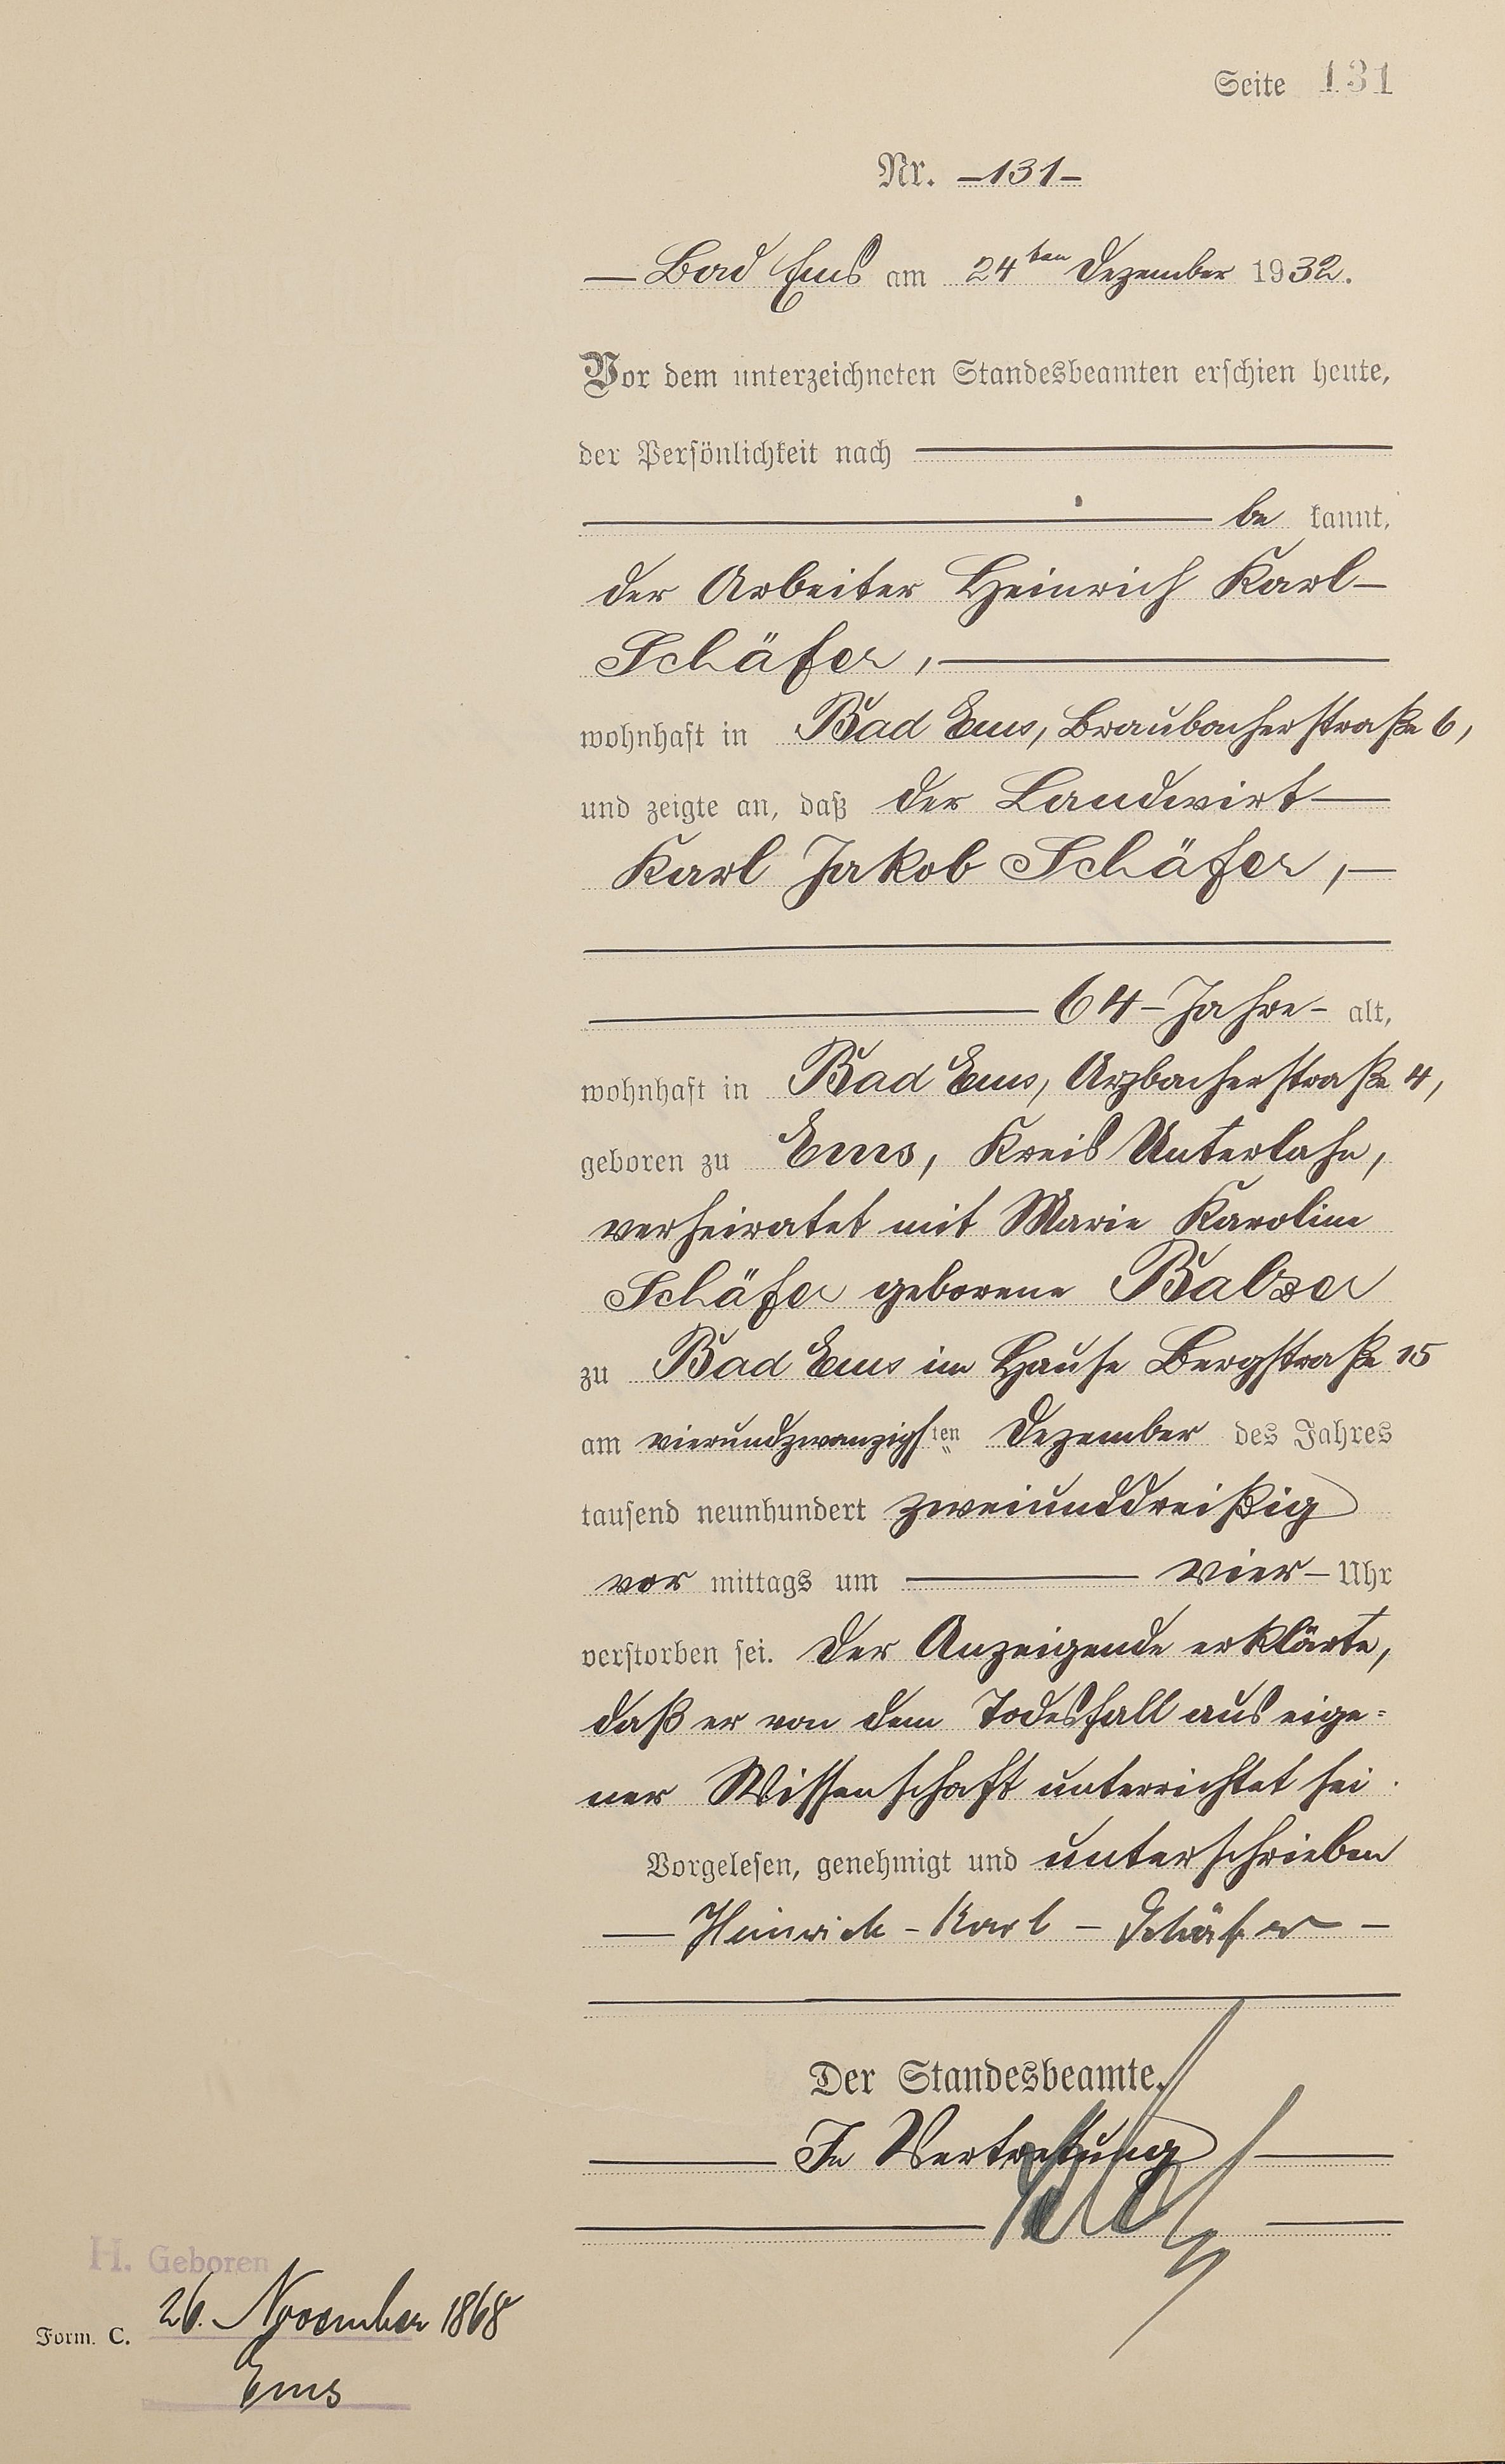 Seite 131
Nr. -131-
Bad Ems am 24ten Dezember 1932.
Vor dem unterzeichneten Standesbeamten erschien heute,
der Persönlichkeit nach
be kannt,
der Arbeiter Heinrich Karl
Schäfer,
wohnhaft in Bad Ems, Braubacherstraße 6,
und zeigte an, daß der Landwirt
Karl Jakob Schäfer,
64 Jahre alt,
wohnhaft in Bad Ems, Arzbacherstraße 4,
geboren zu Ems, Kreis Unterlahn,
verheiratet mit Marie Karoline
Schäfer geborene Balzer
zu Bad Ems im Hause Bergstraße 15
am vierundzwanzigsten Dezember des Jahres
tausend neunhundert zweiunddreißig
vor mittags um vier Uhr
verstorben sei. Der Anzeigende erklärte,
daß er von dem Todesfall aus eige=
ner Wissenschaft unterrichtet sei.
Vorgelesen, genehmigt und unterschrieben
Heinrich - Karl - Schäfer
Der Standesbeamte.
In Vertretung
H. Geboren
26. November 1868
Form. C.
Ems